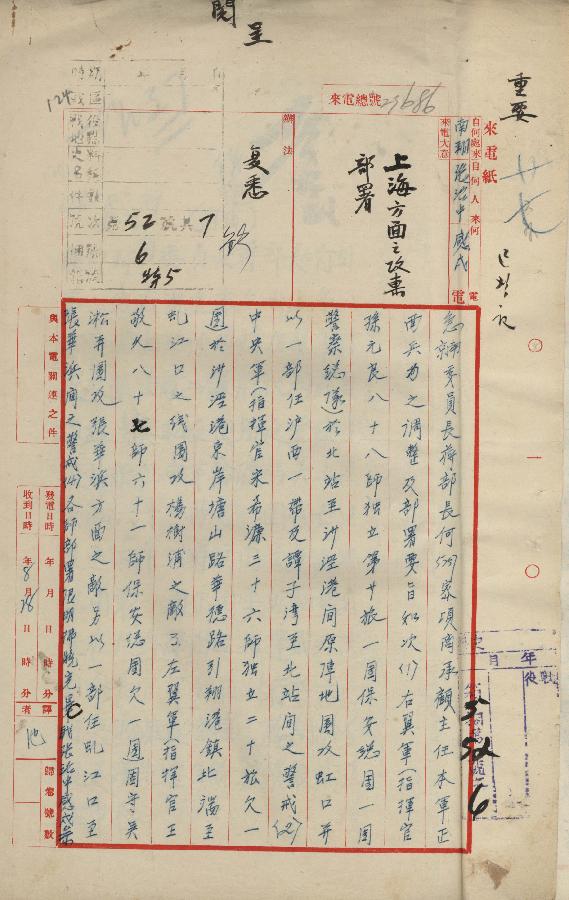 呈
閱
重要
來電紙
來電總號 23686
自何處來 自何人來 何電
南翔 張治中 感戌 電
來電大意
上海方面之攻擊
部署
辦法
复悉
124
52
7
6
5
急京委員長蔣部長何(529)案項商承顧主任本軍正
面兵力之調整及部署要旨如次(1)右翼軍(指揮官
孫元良八十八師獨立第廿旅一團保安總團一團
警察總隊)於北站至沙涇港間原陣地圍攻虹口并
以一部任沪西一帶及譚子灣至北站間之警戒(2)
中央軍(指揮官宋希濂三十六師獨立二十旅欠一
團)於沙涇港東岸塘山路華德路引翔港鎮北端至
虬江口之线圍攻楊樹浦之敵(3)左翼軍(指揮官王
敬久八十七師六十一師保安總團欠一團)固守吳
淞并圍攻張華浜方面之敵另以一部任虬江口至
張華浜間之警戒(4)各師部署限明拂曉完畢職張治中感戌
與本電關連之件
發電日時 年 月 日 時 分
收到日時 年 8 月 28 日 時 分
譯者 池
歸檔號數
年
月
5
52
6